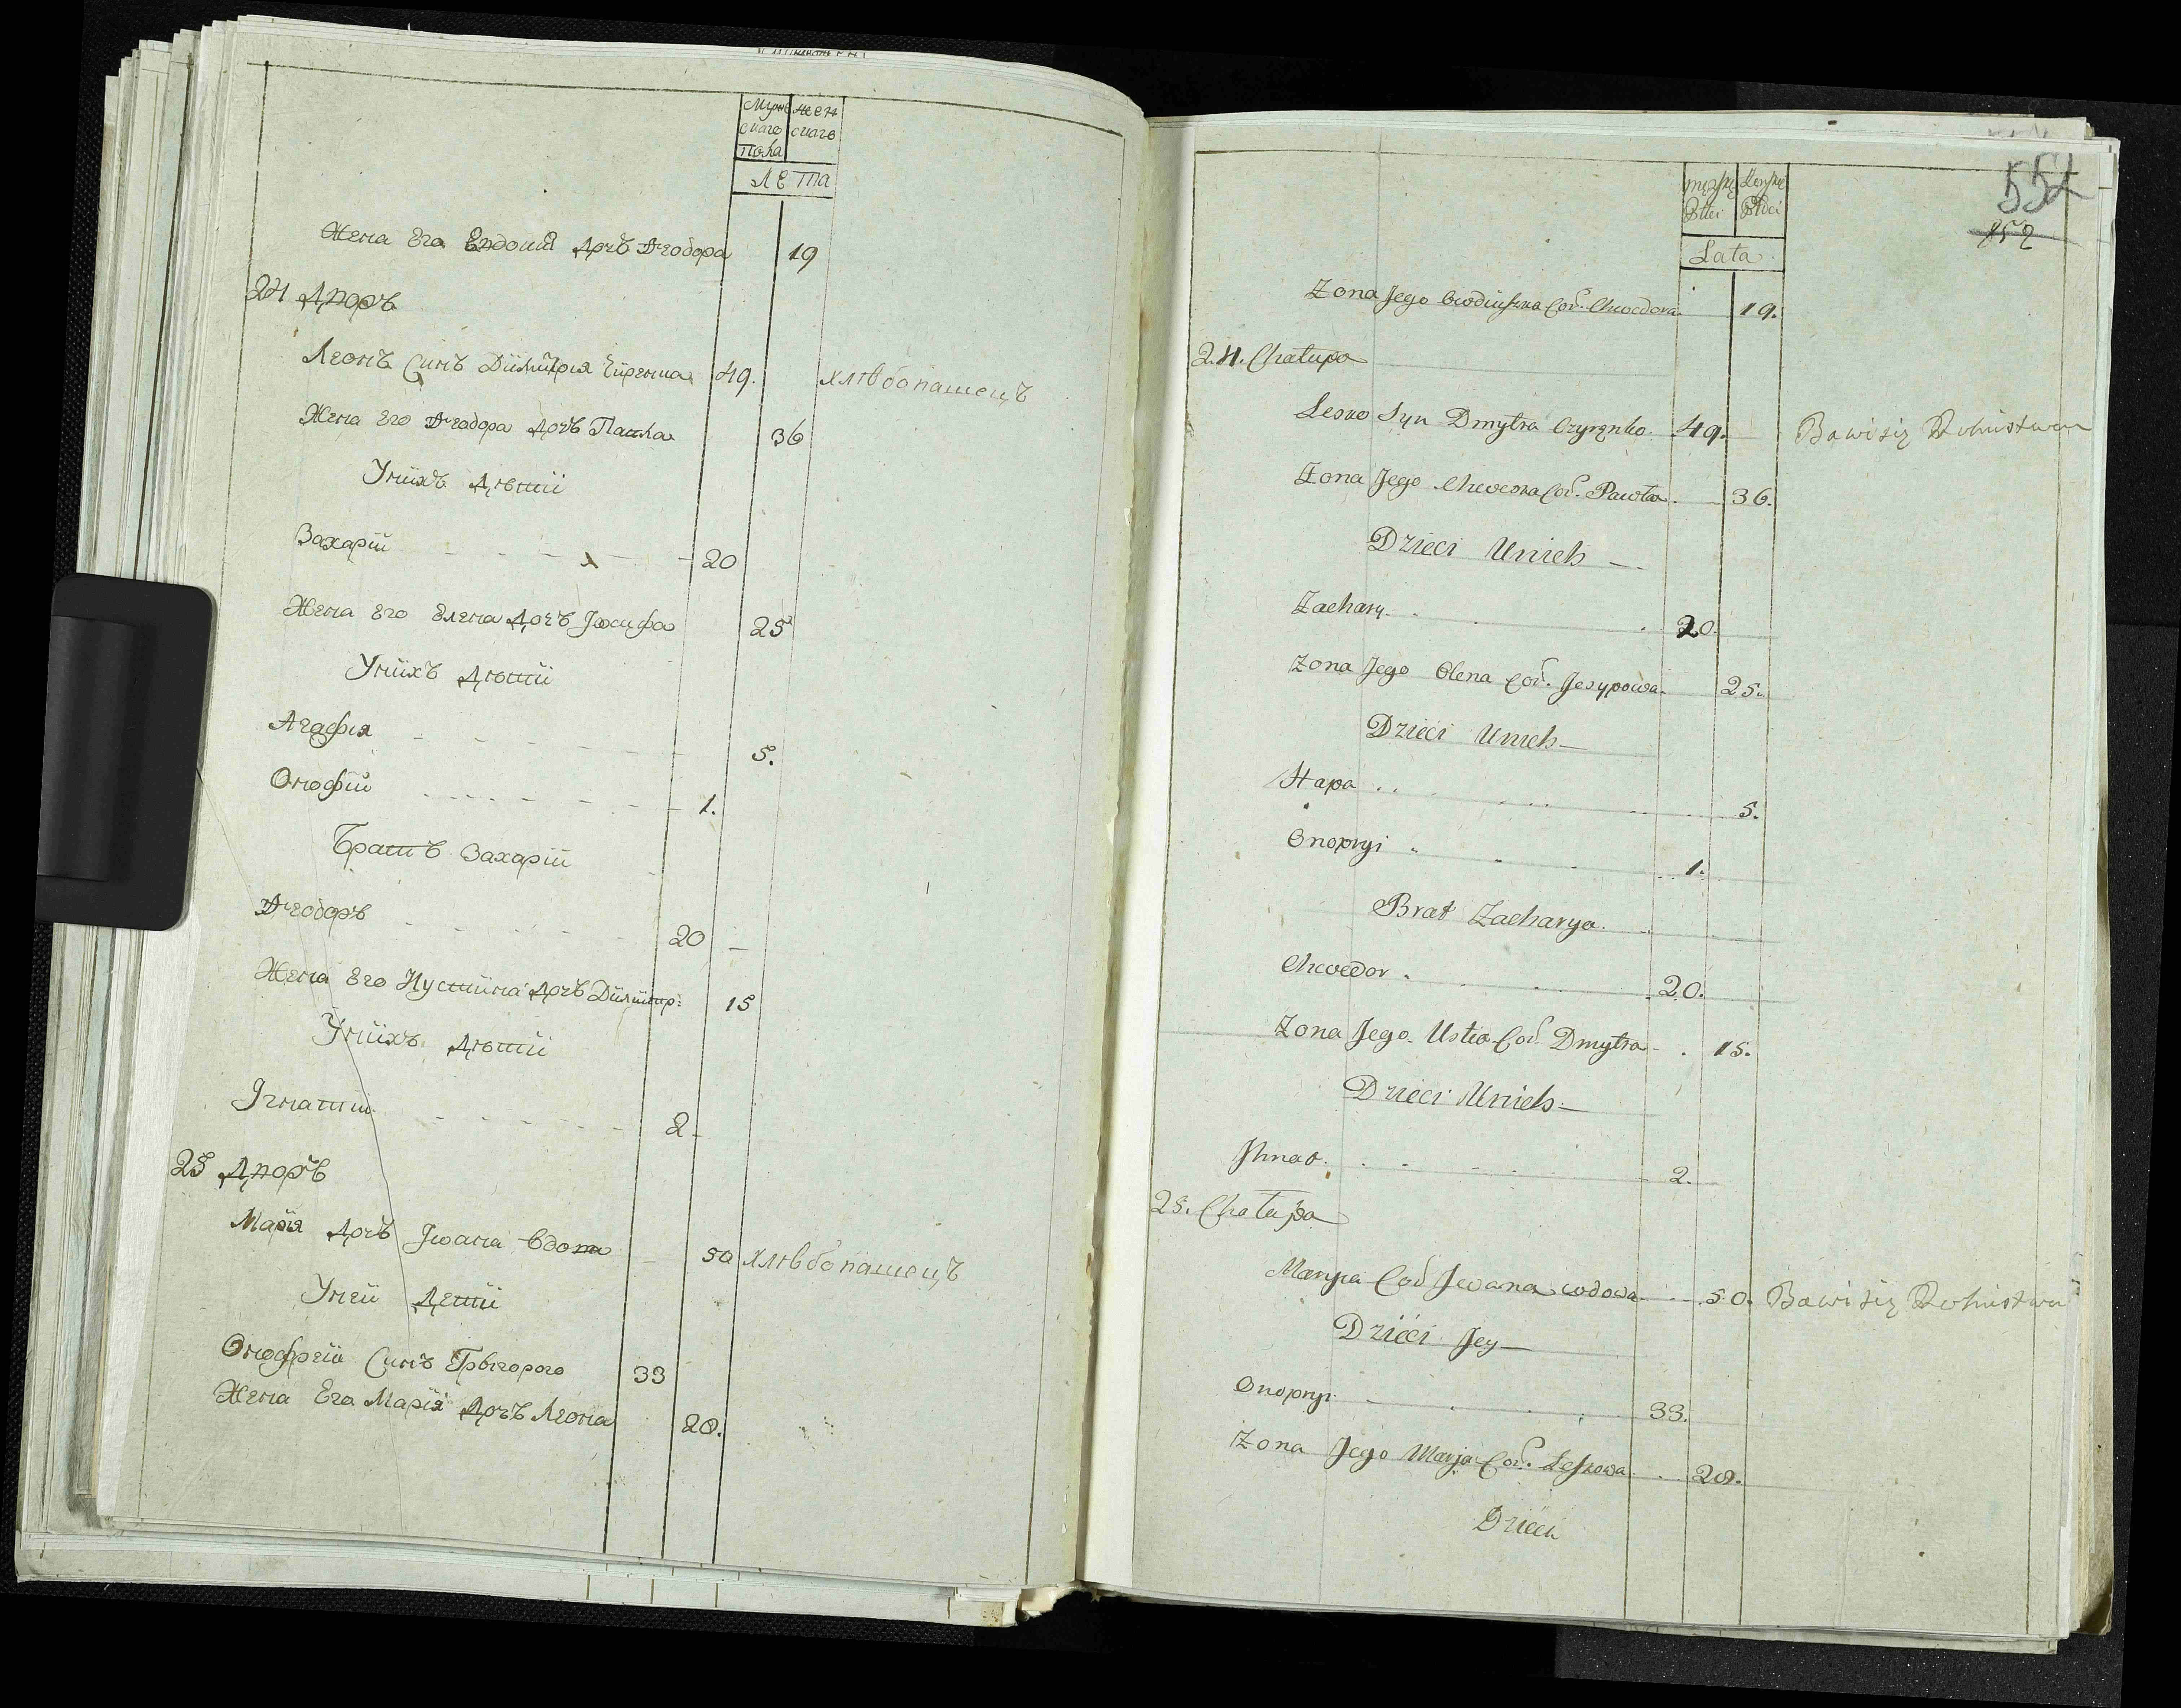 Мужескаго пола
Женскаго
Лета
Жена Его Евдокия Дочь Феодора 19
24 Дворъ
Леонъ Сынъ Диїмитрия Чиренка 49. хлѣбопашецъ
Жена Его Феодора Дочь Павла 36
Униїхъ Дѣтиї
Захариї 20
Жена Его Елена Дочь Иосифа 25
Униїхъ Дѣтиї
Агафия 5.
Онофриї 1.
Братъ Захариї
Феодоръ 20
Жена Его Иустиїна Дочь Диїмитр: 15
Униїхъ Дѣтиї
Игнатиї 2
25 Дворъ
Мариїя Дочь Иоана Вдова 50 хлѣбопашецъ
Унеи Детиї
Онофреиї Синъ Григорого 33
Жена Его Мариї Дочъ Леона 28.
552
152
męzkiej Płci
Żeńskiej Płci
Lata
Zona Jego Cor. Chwedora 19.
24. Chałupa
Lesko Syn Dmytra Czyrenko 49. Bawi się Rolnistwem
Zona Jego Chweska Cor. Pawła 36.
Dzieci Unich
Zachary 20.
Zona Jego Olena Cor. Jesypowa 25.
Dzieci Unich
Hapa 5.
Onopryi 1.
Brat Zacharya
Chwedor 20.
Zona Jego Ustia Cor. Dmytra 15.
Dzieci Unich
Ihnat 2.
25. Chałupa
Maryia Cor Jwana wdowa 50. Bawi się Rolnistwem
Dzieci Jey
Onopryi 33.
Zona Jego Marja Cor. Leskowa 28.
Dzieci